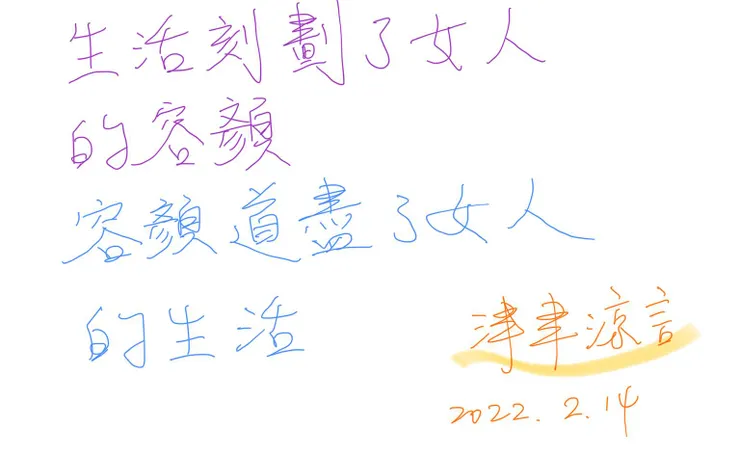 生活刻劃了女人
的容顏
容顏道盡了女人
的生活
津津涼言
2022.2.14